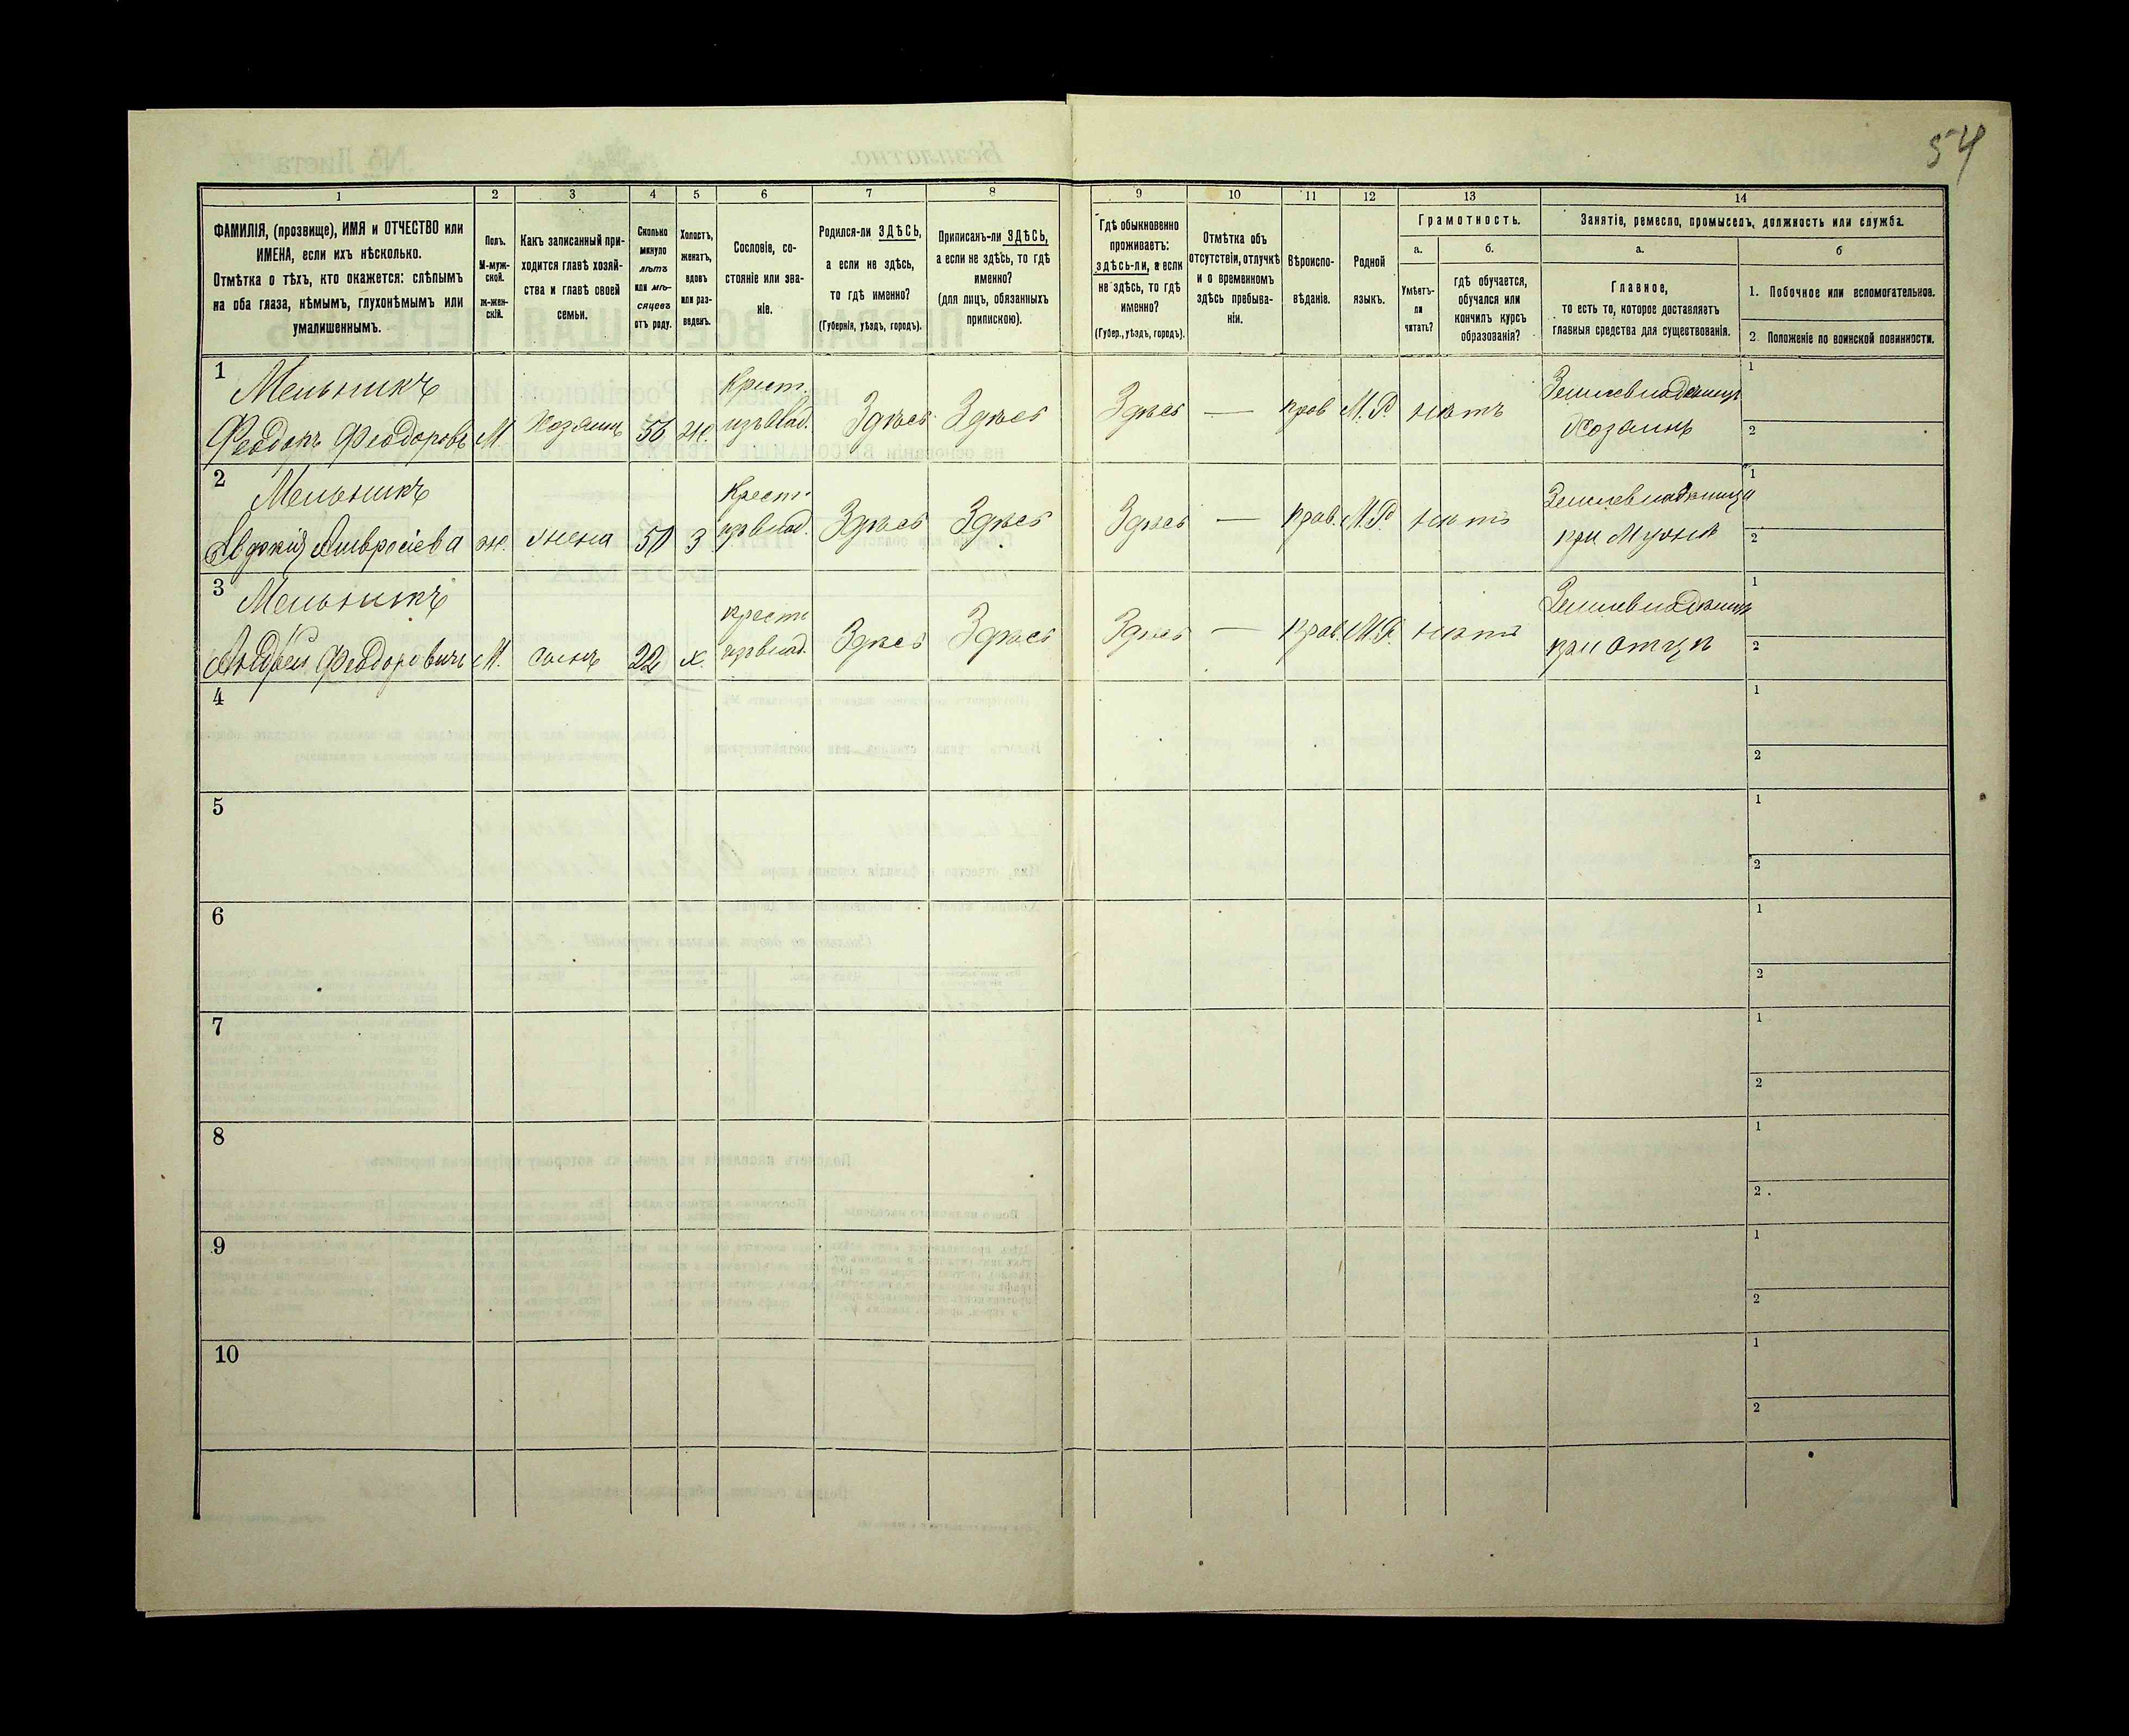 54
1
2
3
4
5
6
7
8
9
10
11
12
13
14
ФАМИЛІЯ, (прозвище), ИМЯ и ОТЧЕСТВО или
ИМЕНА, если ихъ нѣсколько.
Отмѣтка о тѣхъ, кто окажется: слѣпымъ
на оба глаза, нѣмымъ, глухонѣмымъ или
умалишеннымъ.
Полъ.
М-муж-
ской.
ж-жен-
скій.
Какъ записанный при-
ходится главѣ хозяй-
ства и главѣ своей
семьи.
Сколько
минуло
лѣтъ
или мѣ-
сяцевъ
отъ роду.
Холостъ,
женатъ,
вдовъ
или раз-
веденъ.
Сословіе, со-
стояніе или зва-
ніе.
Родился-ли ЗДѢСЬ,
а если не здѣсь,
то гдѣ именно?
(Губернія, уѣздъ, городъ).
Приписанъ-ли ЗДѢСЬ,
а если не здѣсь, то гдѣ
именно?
(для лицъ, обязанныхъ
припискою).
Гдѣ обыкновенно
проживаетъ:
здѣсь-ли, а если
не здѣсь, то гдѣ
именно?
(Губер., уѣздъ, городъ).
Отмѣтка объ
отсутствіи, отлучкѣ
и о временномъ
здѣсь пребыва-
ніи.
Вѣроиспо-
вѣданіе.
Родной
языкъ.
Грамотность.
а.
Умѣетъ-
ли
читать?
б.
гдѣ обучается,
обучался или
кончилъ курсъ
образованія?
Занятіе, ремесло, промыселъ, должность или служба.
а.
Главное,
то есть то, которое доставляетъ
главныя средства для существованія.
б
1. Побочное или вспомогательное.
2. Положеніе по воинской повинности.
1
Мельникъ
Феодоръ Феодоровъ
М
Хозяинъ
56
ж.
Крест.
изъ влад.
Здѣсь
Здѣсь
Здѣсь
—
прав
М.Р.
нѣтъ
Землевладелецъ
Хозяинъ
1
2
2
Мельникъ
Амвросіева
ж.
жена
50
з
Крест.
изъ влад.
Здѣсь
Здѣсь
Здѣсь
—
Прав.
М.Р
нѣтъ
при мужѣ
1
2
3
Мельникъ
Андрей Феодоровичъ
М.
сынъ
22
х.
крест.
изъ влад.
Здѣсь
Здѣсь
Здѣсь
—
Прав.
М.Р.
нѣтъ
Землевладелецъ
при отцѣ
1
2
4
1
2
5
1
2
6
1
2
7
1
2
8
1
2
9
1
2
10
1
2